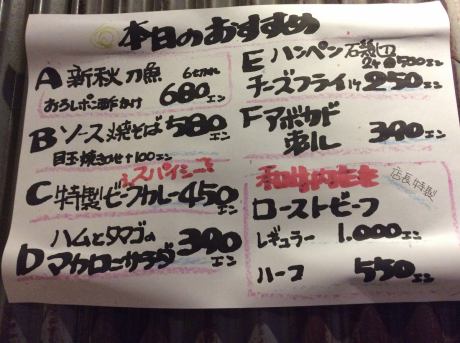 本日のおすすめ
A 新秋刀魚 6切れ
おろしポン酢かけ 680エン
B ソース焼そば 580エン
目玉焼のせ+100エン
スパイシーで
C 特製ビーフカレー 450エン
D ハムとタマゴの
マカロニサラダ 390エン
E ハンペン
2ヶ 500エン
チーズフライ 1ケ 250エン
F アボカド
刺し 390エン
店長特製
ローストビーフ
レギュラー 1.000エン
ハーフ 550エン